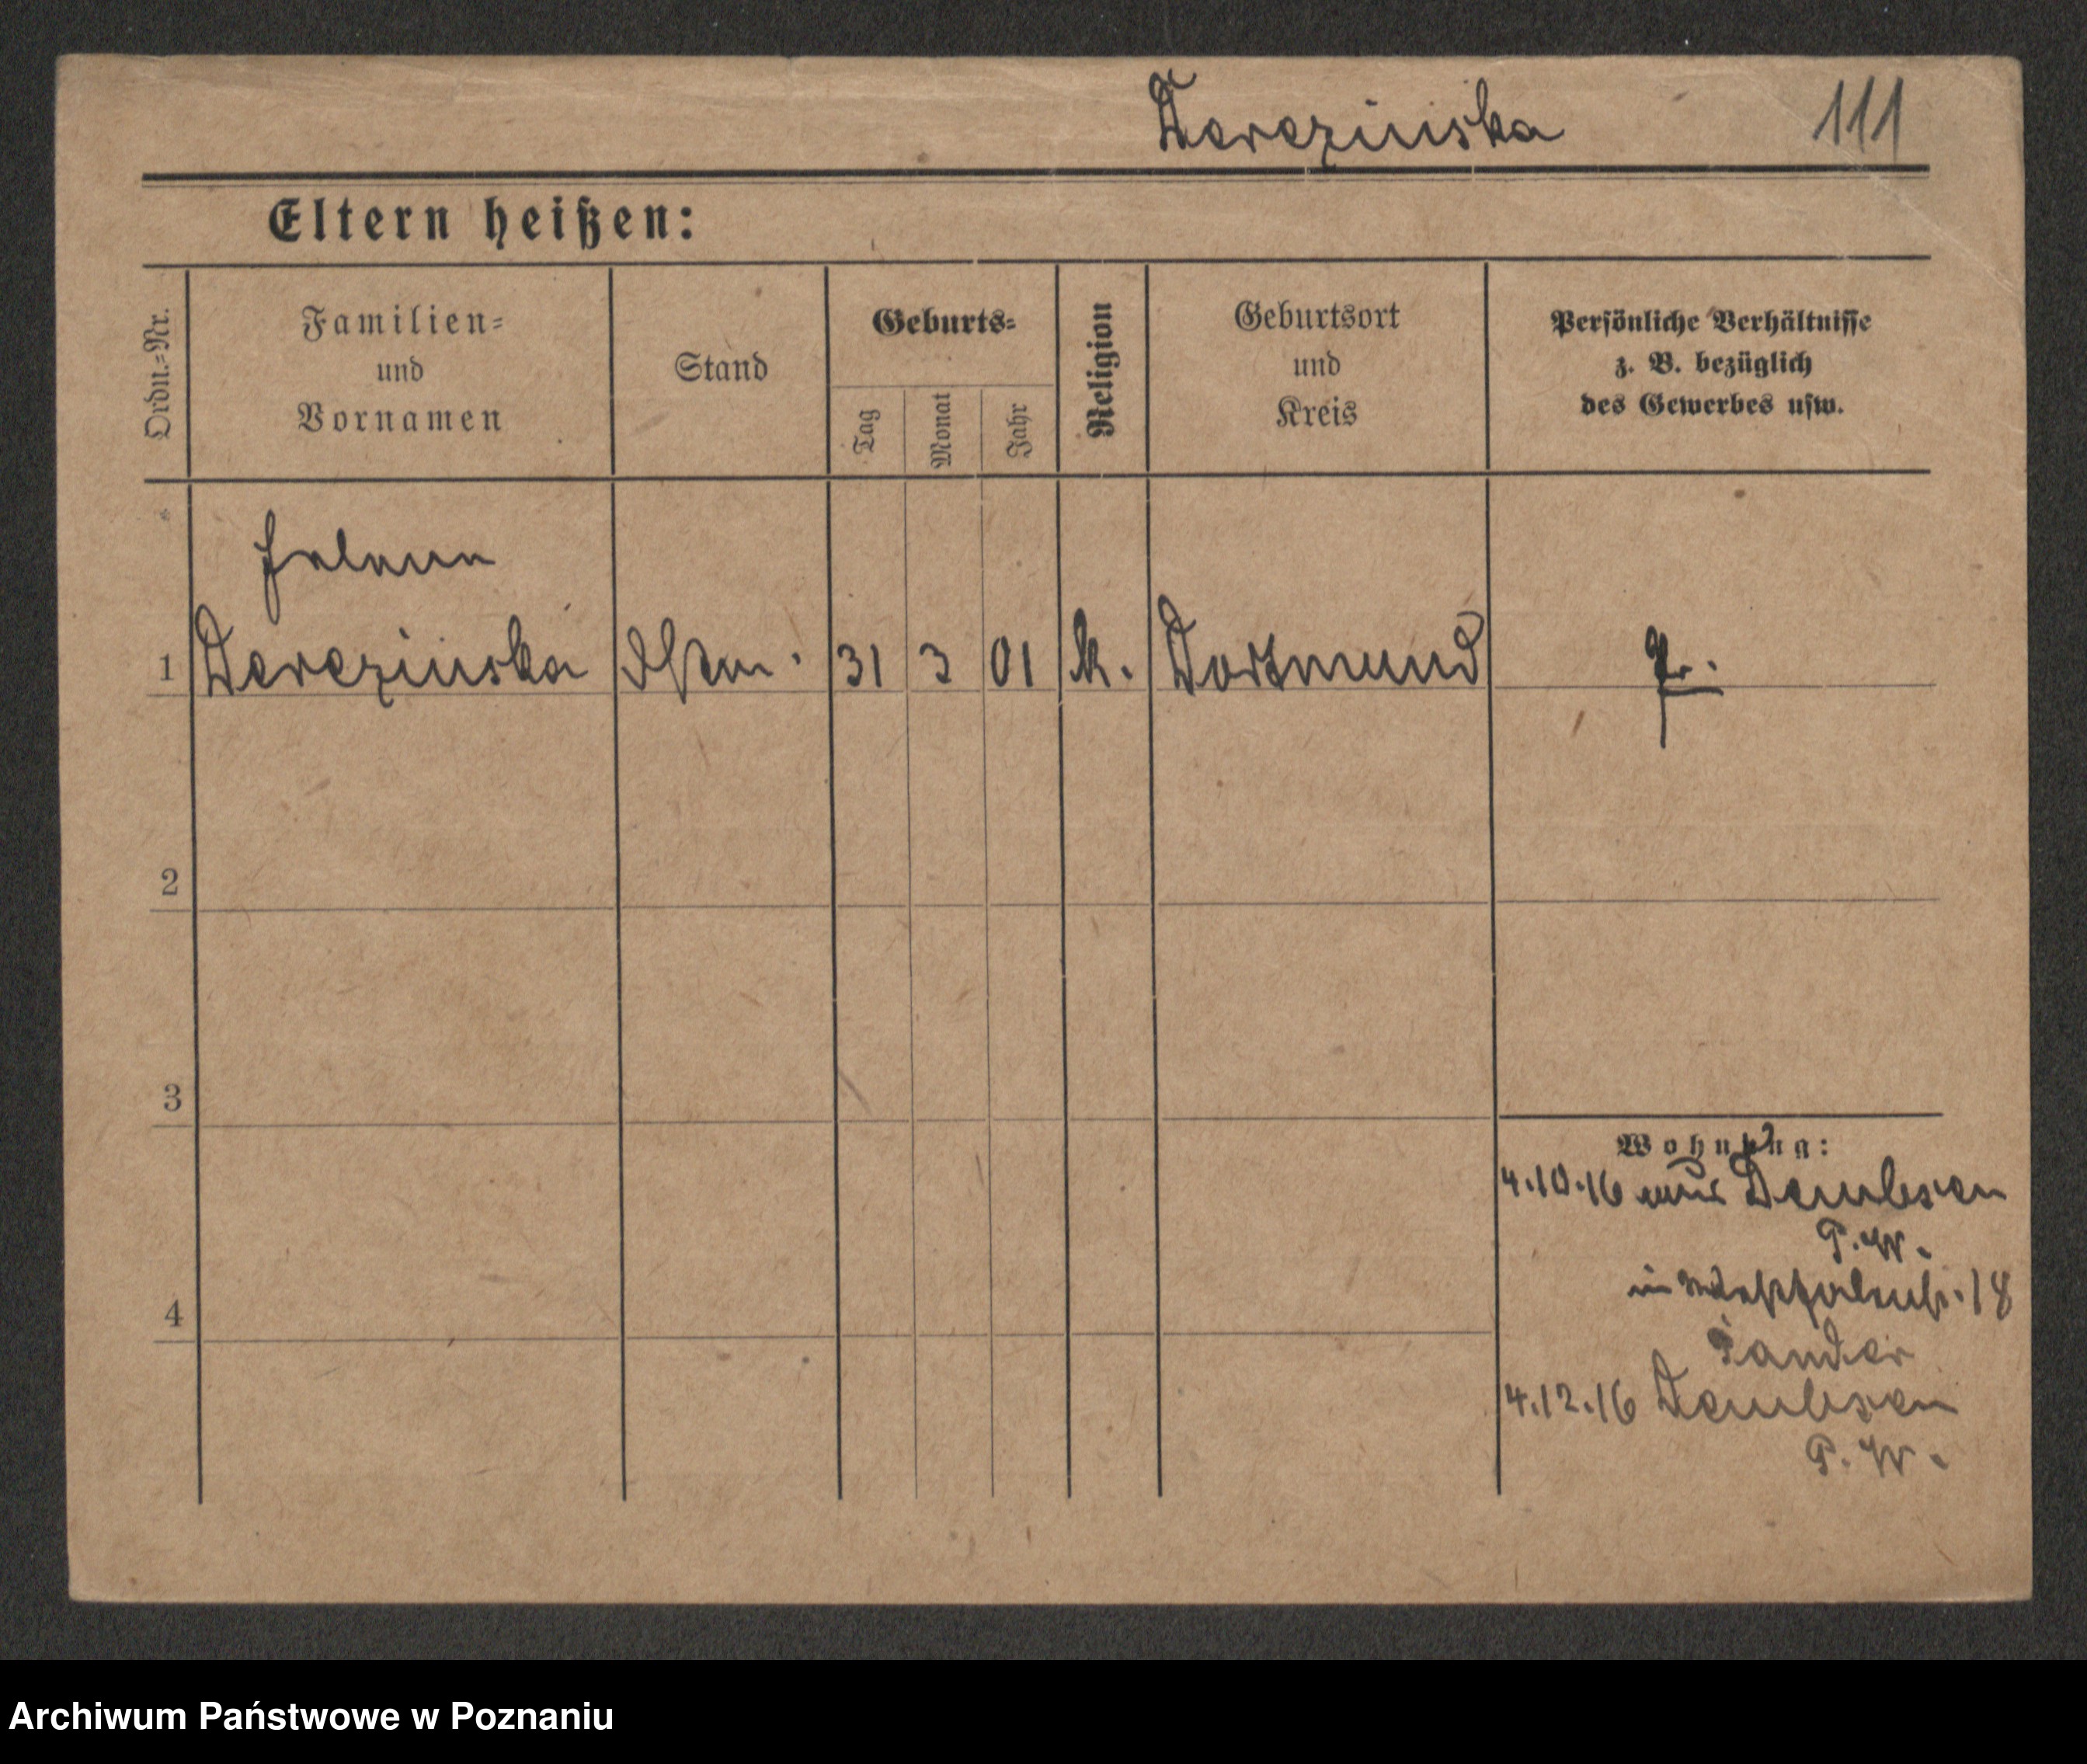 Derezinska 111
Eltern heißen:
Ordn.=Nr.
Familien=
und
Vornamen
Stand
Geburts=
Tag
Monat
Jahr
Religion
Geburtsort
und
Kreis
Persönliche Verhältnisse
z. B. bezüglich
des Gewerbes usw.
Helene
1 Derezinska 31 3 01 k. Dortmund Pr.
2
3
4
Wohnung:
4.10.16 aus Dembsen
P.W.
in 18
Sander
4.12.16 Dembsen
P.W.
Archiwum Państwowe w Poznaniu